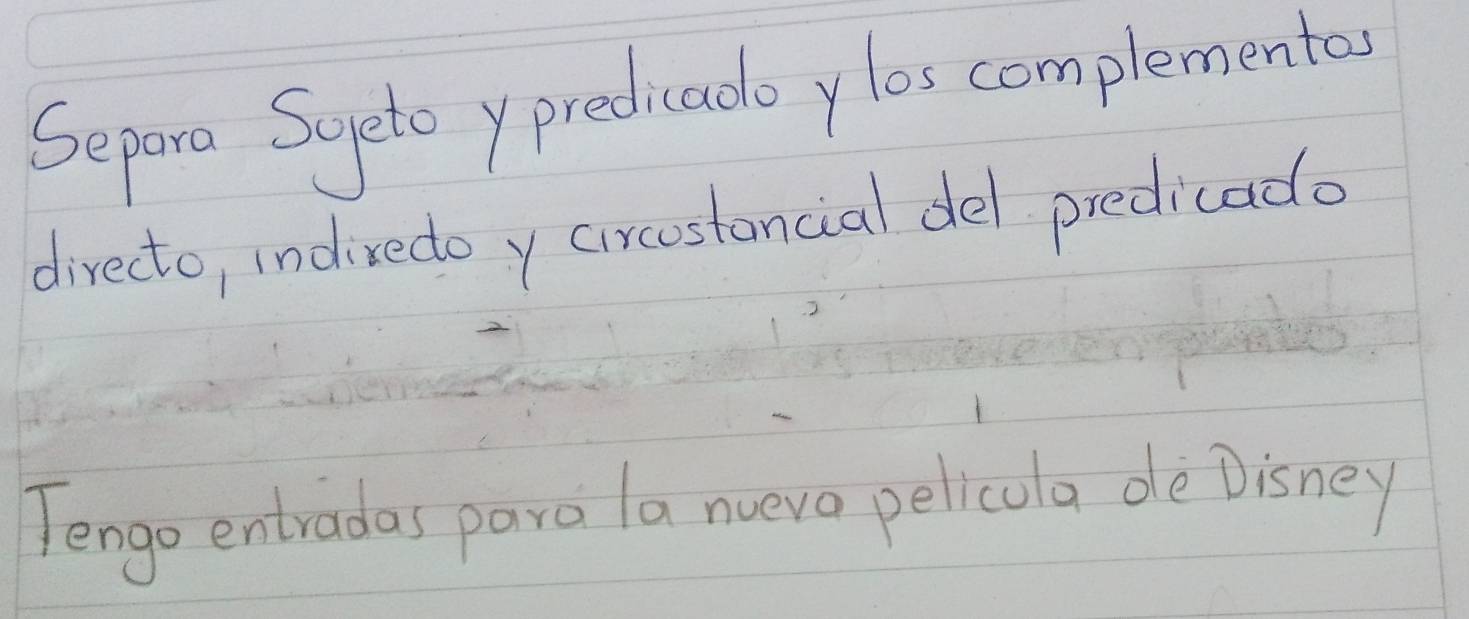 Separa Sujeto y predicado y los complementos
directo, indirecto y circustancial del predicado
Tengo entradas para la nueva pelicula de Disney